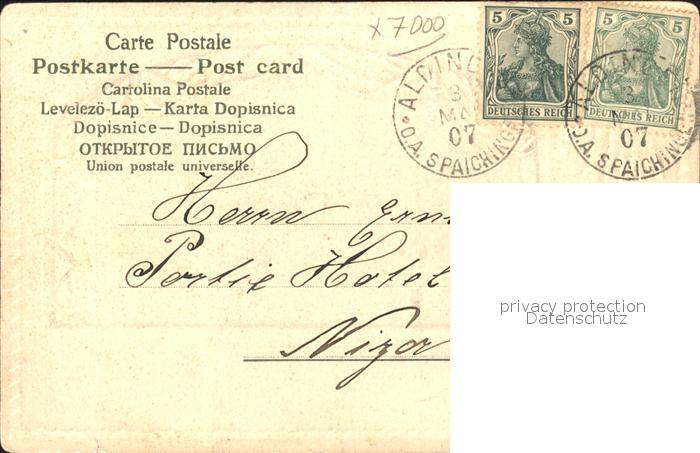 x 7000
Carte Postale
Postkarte — Post card
Cartolina Postale
Levelező-Lap — Karta Dopisnica
Dopisnice — Dopisnica
ОТКРЫТОЕ ПИСЬМО
Union postale universelle.
5 5
DEUTSCHES REICH
5 5
DEUTSCHES REICH
ALDING
07
O.A. SPAICHING
07
O.A. SPAICHING
Herrn
Portie Hotel
Nizza
privacy protection
Datenschutz